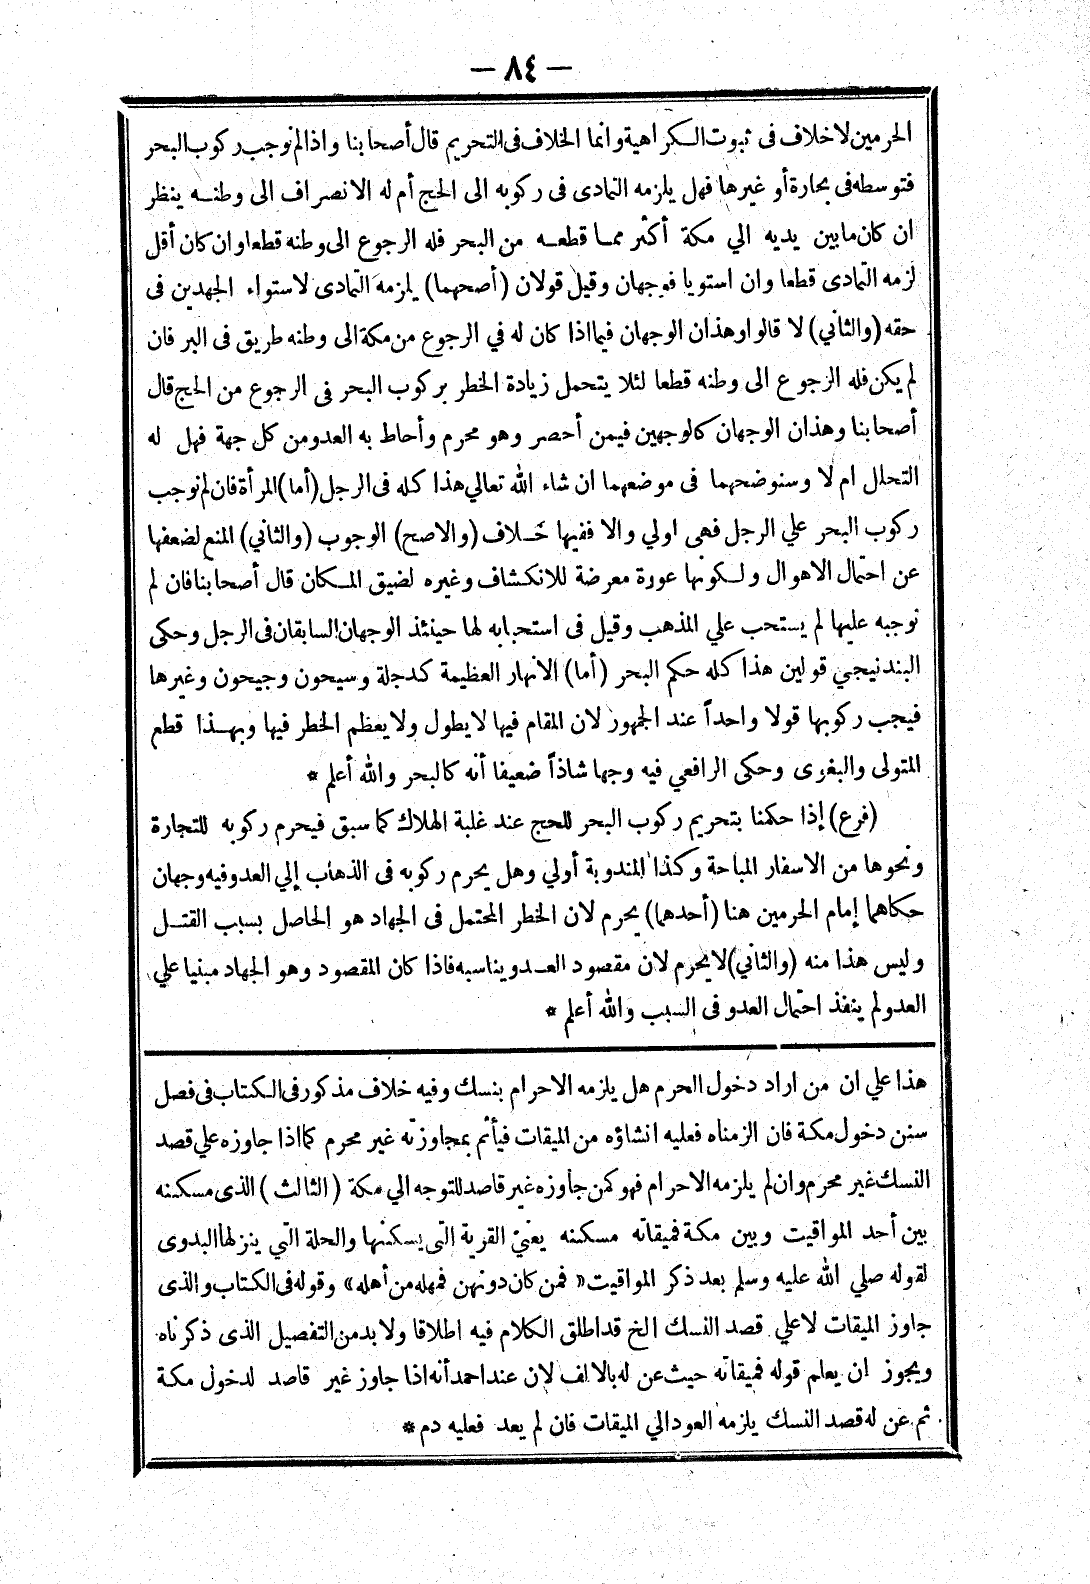 — ٨٤ —
الحرمين لاخلاف فى ثبوت الكراهية وانما الخلاف فى التحريم قال أصحابنا واذا لم نوجب ركوب البحر
فتوسطه فى تجارة أو غيرها فهل يلزمه التمادى فى ركوبه الى الحج أم له الانصراف الى وطنه ينظر
ان كان مابين يديه الي مكة أكثر مما قطعه من البحر فله الرجوع الى وطنه قطعا وان كان أقل
لزمه التمادى قطعا وان استويا فوجهان وقيل قولان (أصحهما) يلزمه التمادى لاستواء الجهدين فى
حقه (والثاني) لا قالوا وهذان الوجهان فيما اذا كان له في الرجوع من مكة الى وطنه طريق فى البر فان
لم يكن فله الرجوع الى وطنه قطعا لئلا يتحمل زيادة الخطر بركوب البحر فى الرجوع من الحج قال
أصحابنا وهذان الوجهان كالوجهين فيمن أحصر وهو محرم وأحاط به العدو من كل جهة فهل له
التحلل ام لا وسنوضحهما فى موضعهما ان شاء الله تعالي هذا كله فى الرجل (أما) المرأة فان لم نوجب
ركوب البحر علي الرجل فهى اولي والا ففيها خلاف (والاصح) الوجوب (والثاني) المنع لضعفها
عن احتمال الاهوال ولكونها عورة معرضة للانكشاف وغيره لضيق المكان قال أصحابنا فان لم
نوجبه عليها لم يستحب علي المذهب وقيل فى استحبابه لها حينئذ الوجهان السابقان فى الرجل وحكى
البندنيجي قولين هذا كله حكم البحر (أما) الانهار العظيمة كدجلة وسيحون وجيحون وغيرها
فيجب ركوبها قولا واحداً عند الجمهور لان المقام فيها لا يطول ولا يعظم الخطر فيها وبهذا قطع
المتولى والبغوى وحكى الرافعي فيه وجها شاذاً ضعيفا أنه كالبحر والله أعلم *
(فرع) إذا حكمنا بتحريم ركوب البحر للحج عند غلبة الهلاك كما سبق فيحرم ركوبه للتجارة
ونحوها من الاسفار المباحة وكذا المندوبة أولي وهل يحرم ركوبه فى الذهاب إلي العدو فيه وجهان
حكاهما إمام الحرمين هنا (أحدها) يحرم لان الخطر المحتمل فى الجهاد هو الحاصل بسبب القتل
وليس هذا منه (والثاني) لا يحرم لان مقصود العدو يناسبه فاذا كان المقصود وهو الجهاد مبنيا علي
العدو لم ينفذ احتمال العدو فى السبب والله أعلم *
هذا علي ان من اراد دخول الحرم هل يلزمه الاحرام بنسك وفيه خلاف مذكور فى الكتاب فى فصل
سنن دخول مكة فان الزمناه فعليه انشاؤه من الميقات فيأثم بمجاوزته غير محرم كما اذا جاوزه علي قصد
النسك غير محرم وان لم يلزمه الاحرام فهو كمن جاوزه غير قاصد للتوجه الي مكة (الثالث) الذى مسكنه
بين أحد المواقيت وبين مكة فميقاته مسكنه يعني القرية التى يسكنها والحلة التي ينزلها البدوى
لقوله صلي الله عليه وسلم بعد ذكر المواقيت « فمن كان دونهن فمهله من أهله» وقوله فى الكتاب والذى
جاوز الميقات لا علي قصد النسك الخ قد اطلق الكلام فيه اطلاقا ولا بد من التفصيل الذى ذكرناه
ويجوز ان يعلم قوله فميقاته حيث عن له بالالف لان عند احمد أنه اذا جاوز غير قاصد لدخول مكة
ثم عن له قصد النسك يلزمه العود الي الميقات فان لم يعد فعليه دم *